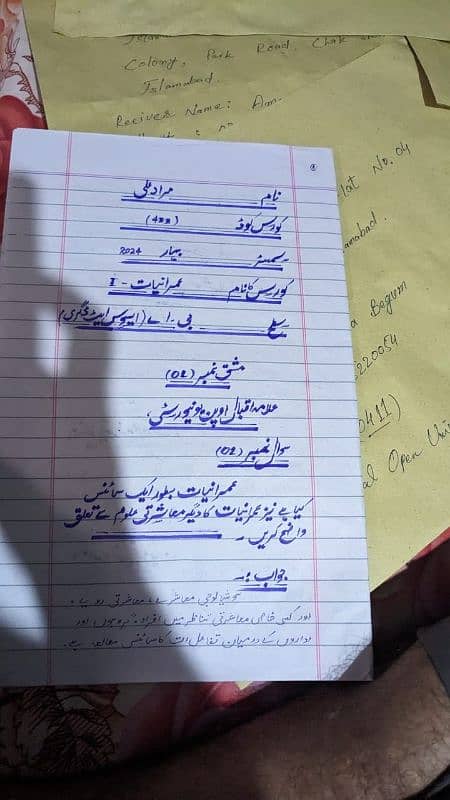 Colony, Park Road, Chak
Islamabad.
Recives Name: Am-
lat No. 04
amabad.
a Begum
220054
0411)
al Open Uni
نام مراد علی
کورس کوڈ (422)
سمسٹر بہار 2024
کورس کا نام عمرانیات - I
سطح بی-اے (ایسوسی ایٹ ڈگری)
مشق نمبر (02)
علامہ اقبال اوپن یونیورسٹی
سوال نمبر (02)
عمرانیات بطور ایک سائنس
کیا ہے نیز عمرانیات کا دیگر معاشرتی علوم سے تعلق
واضح کریں۔
جواب:-
سوشیالوجی معاشرے، معاشرتی رویے،
اور کسی خاص معاشرتی تناظر میں افراد، گروہوں اور
اداروں کے درمیان تفاعلات کا سائنسی مطالعہ ہے۔